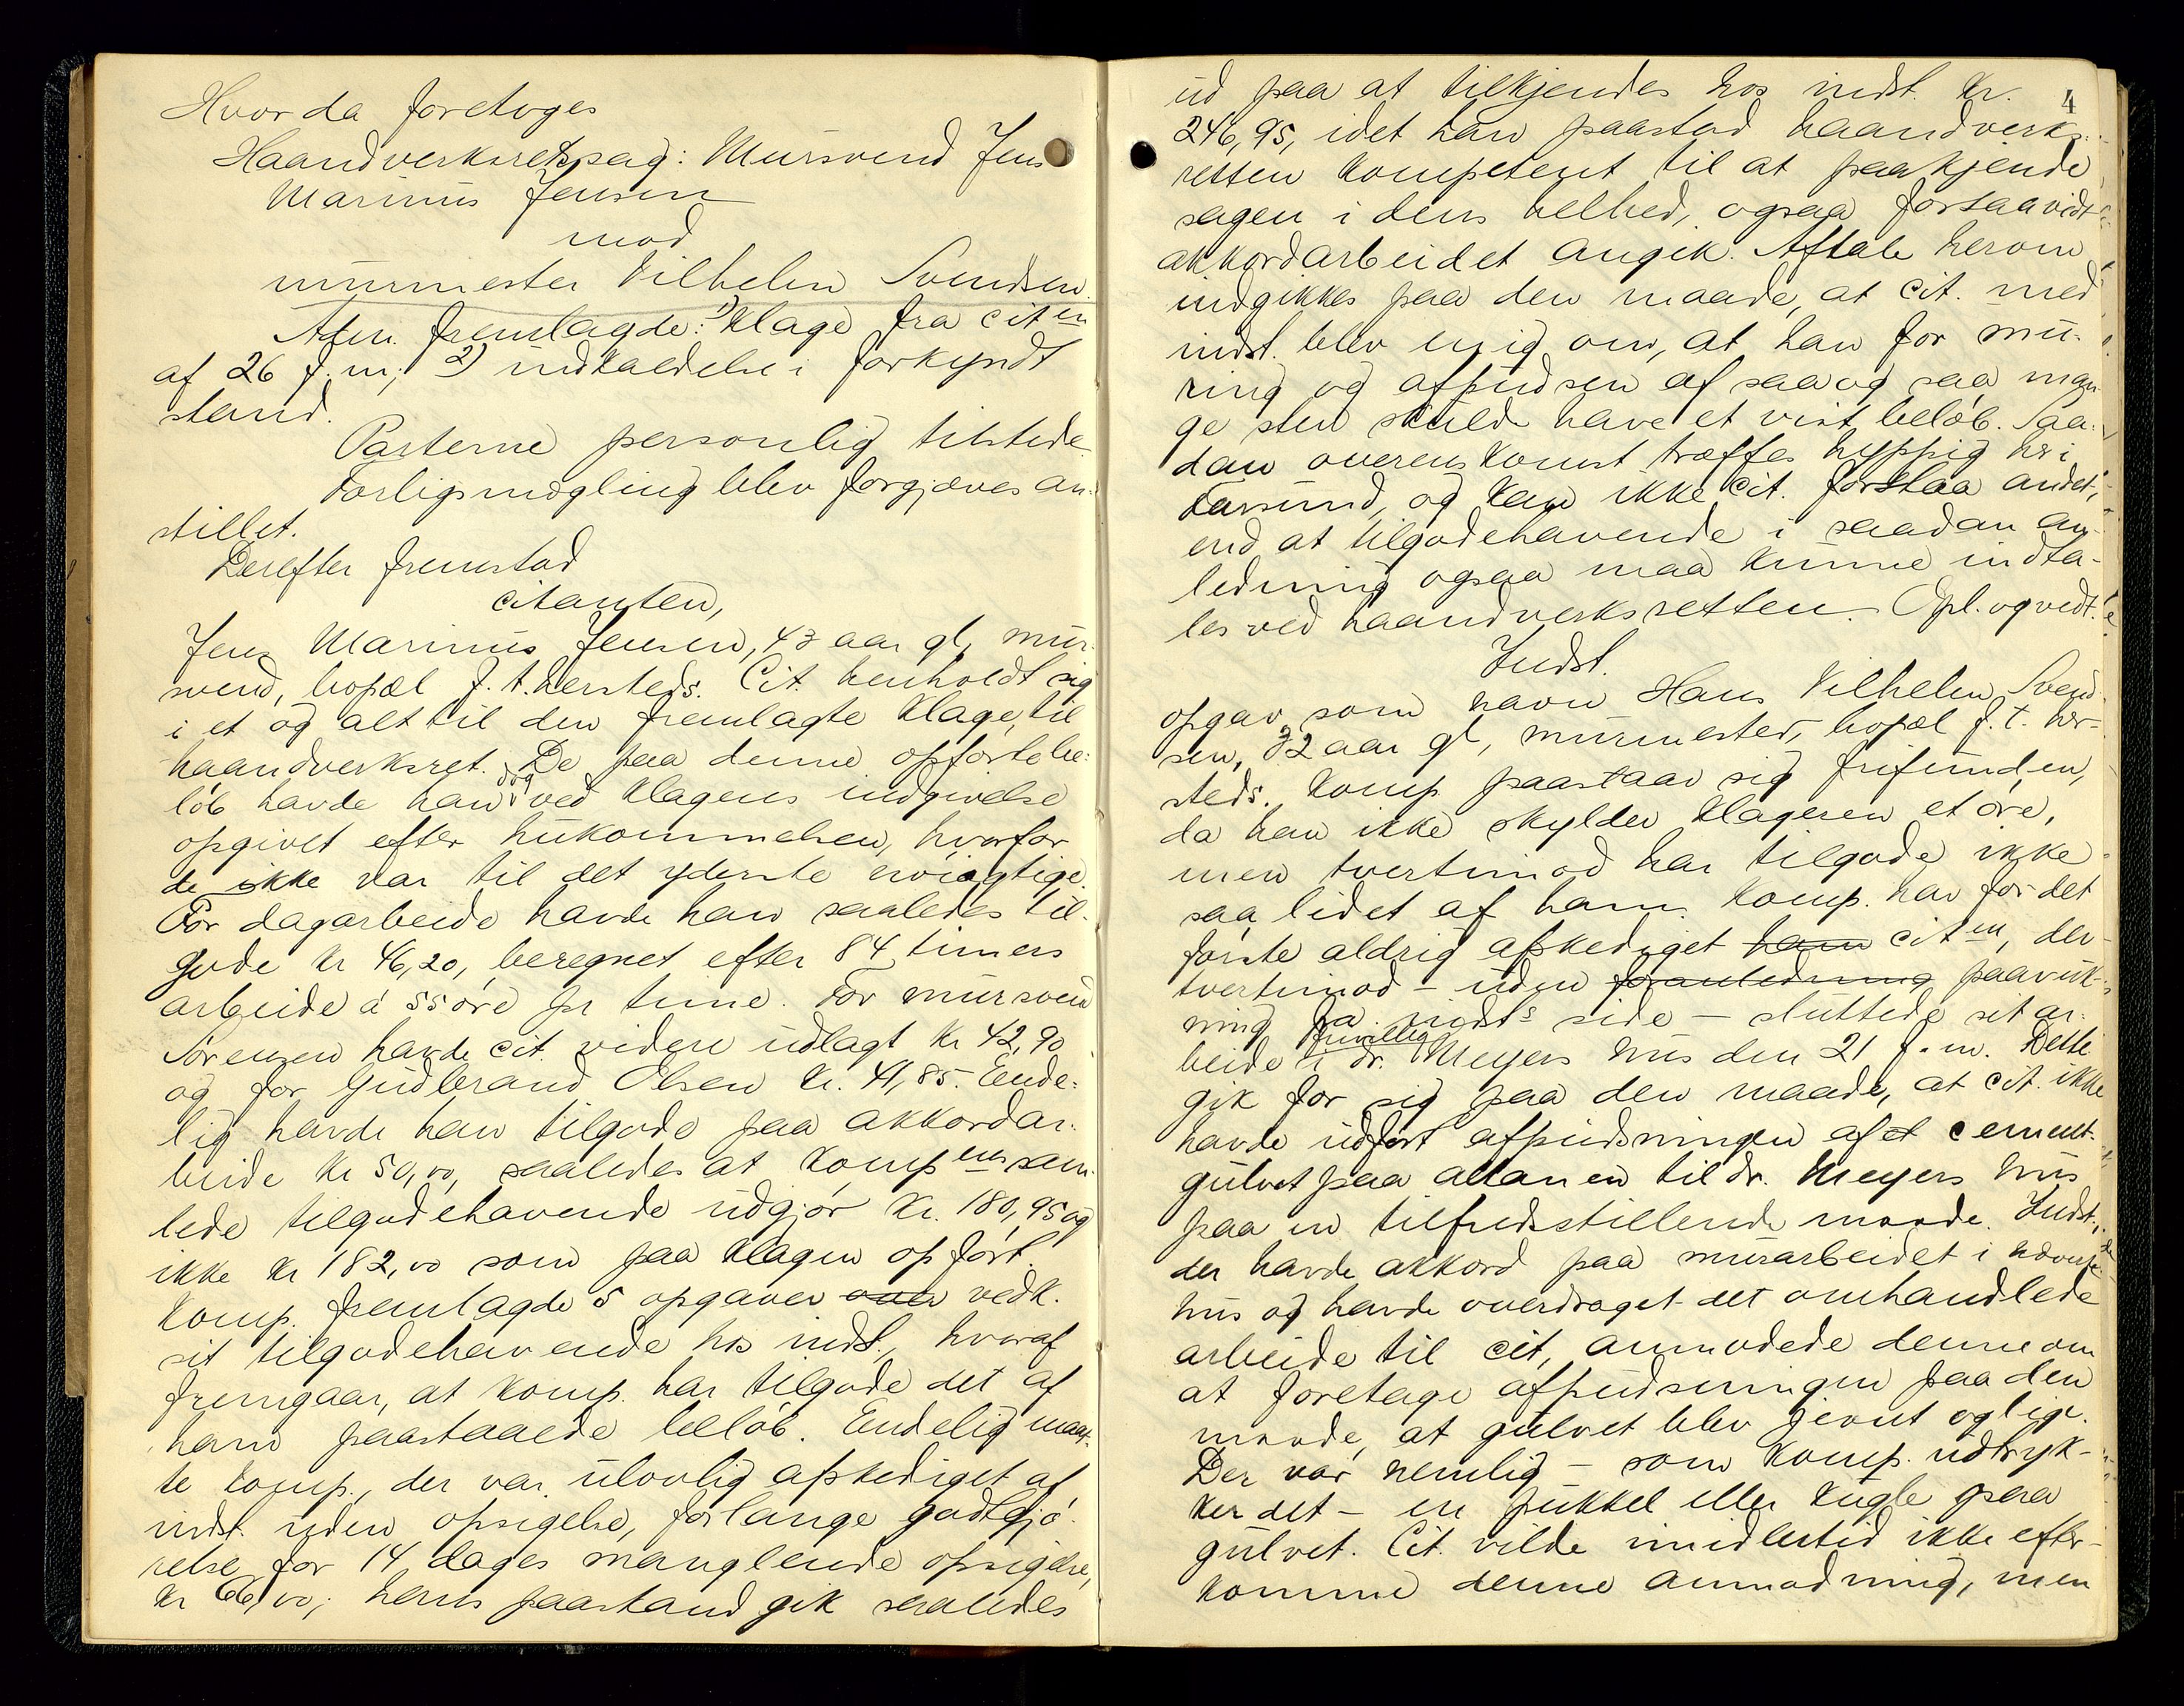 Hvorda foretoges
Haandverksretssag: Mursvend Jens
Marinus Jensen
mod
murmester Vilhelm Svendsen.
Adm. fremlagde: 1) Klage fra citen
af 26 f. m; 2) indkaldelse i forkyndt
stand.
Parterne personlig tilstede.
Forligsmægling blev forgjæves an-
stillet.
Derefter fremstod
citanten,
Jens Marinus Jensen, 43 aar gl, mur-
svend, bopæl f. t. hersteds. Cit. henholdt sig
i et og alt til den fremlagte klage, til
haandverksret. De paa denne opførte be-
løb havde han dog ved klagens indgivelse
opgivet efter hukommelsen, hvorfor
de ikke var til det yderste nøiagtige.
For dagarbeide havde han saaledes til-
gode kr 46,20, beregnet efter 84 timers
arbeide á 55 øre pr time. For mursvend
Sørensen havde cit. videre udlagt kr 42,90
og for Gudbrand Olsen kr. 41,85. Ende-
lig havde han tilgode paa akkordar-
beide kr 50,00, saaledes at kompens sam-
lede tilgodehavende udgjør kr. 180,95 og
ikke kr 182,00 som paa klagen opført.
Komp. fremlagde 5 opgaver over vedk.
sit tilgodehavende hos indst., hvoraf
fremgaar, at komp. har tilgode det af
ham paastaaede beløb. Endelig maat-
te komp., der var ulovlig afskediget af
indst. uden opsigelse, forlange godtgjø-
relse for 14 dages manglende opsigelse,
kr 66,00; hans paastand gik saaledes
4
ud paa at tilkjendes hos indst. kr.
246,95, idet han paastod haandverks-
retten kompetent til at paakjende
sagen i dens helhed, ogsaa forsaavidt
akkordarbeidet angik. Aftale herom
indgikkes paa den maade, at cit. med
indst. blev enig om, at han for mu-
ring og afpudsen af saa og saa man-
ge sten skulde have et vist beløb. Saa-
dan overenskomst træffes hyppig her i
Farsund, og kan ikke cit. forstaa andet,
end at tilgodehavende i saadan an-
ledning ogsaa maa kunne indta-
les ved haandverksretten. Opl. og vedt.
Indst.
opgav som navn Hans Vilhelm Svend-
sen, 32 aar gl, murmester, bopæl f. t. her-
steds. Komp paastaar sig frifunden,
da han ikke skylder klageren et øre,
men tvertimod har tilgode ikke
saa lidet af ham. Komp. har for det
første aldrig afskediget ham citen, der
tvertimod – uden foranledning paavirk-
ning fra indsts side – sluttede sit ar-
frivillig
beide i dr. Meyers hus den 21 f. m. Dette
gik for sig paa den maade, at cit. ikke
havde udført afpudsningen af et cement-
gulvet paa altanen til dr. Meyers hus
paa en tilfredsstillende maade. Indst.,
der havde akkord paa murarbeidet i nævnte
hus og havde overdraget det omhandlede
arbeide til cit, anmodede denne om
at foretage afpudsningen paa den
maade, at gulvet blev jevnt og lige.
Der var nemlig – som komp. udtryk-
ker det – en pukkel eller kugle paa
gulvet. Cit. vilde imidlertid ikke efter-
komme denne anmodning, men